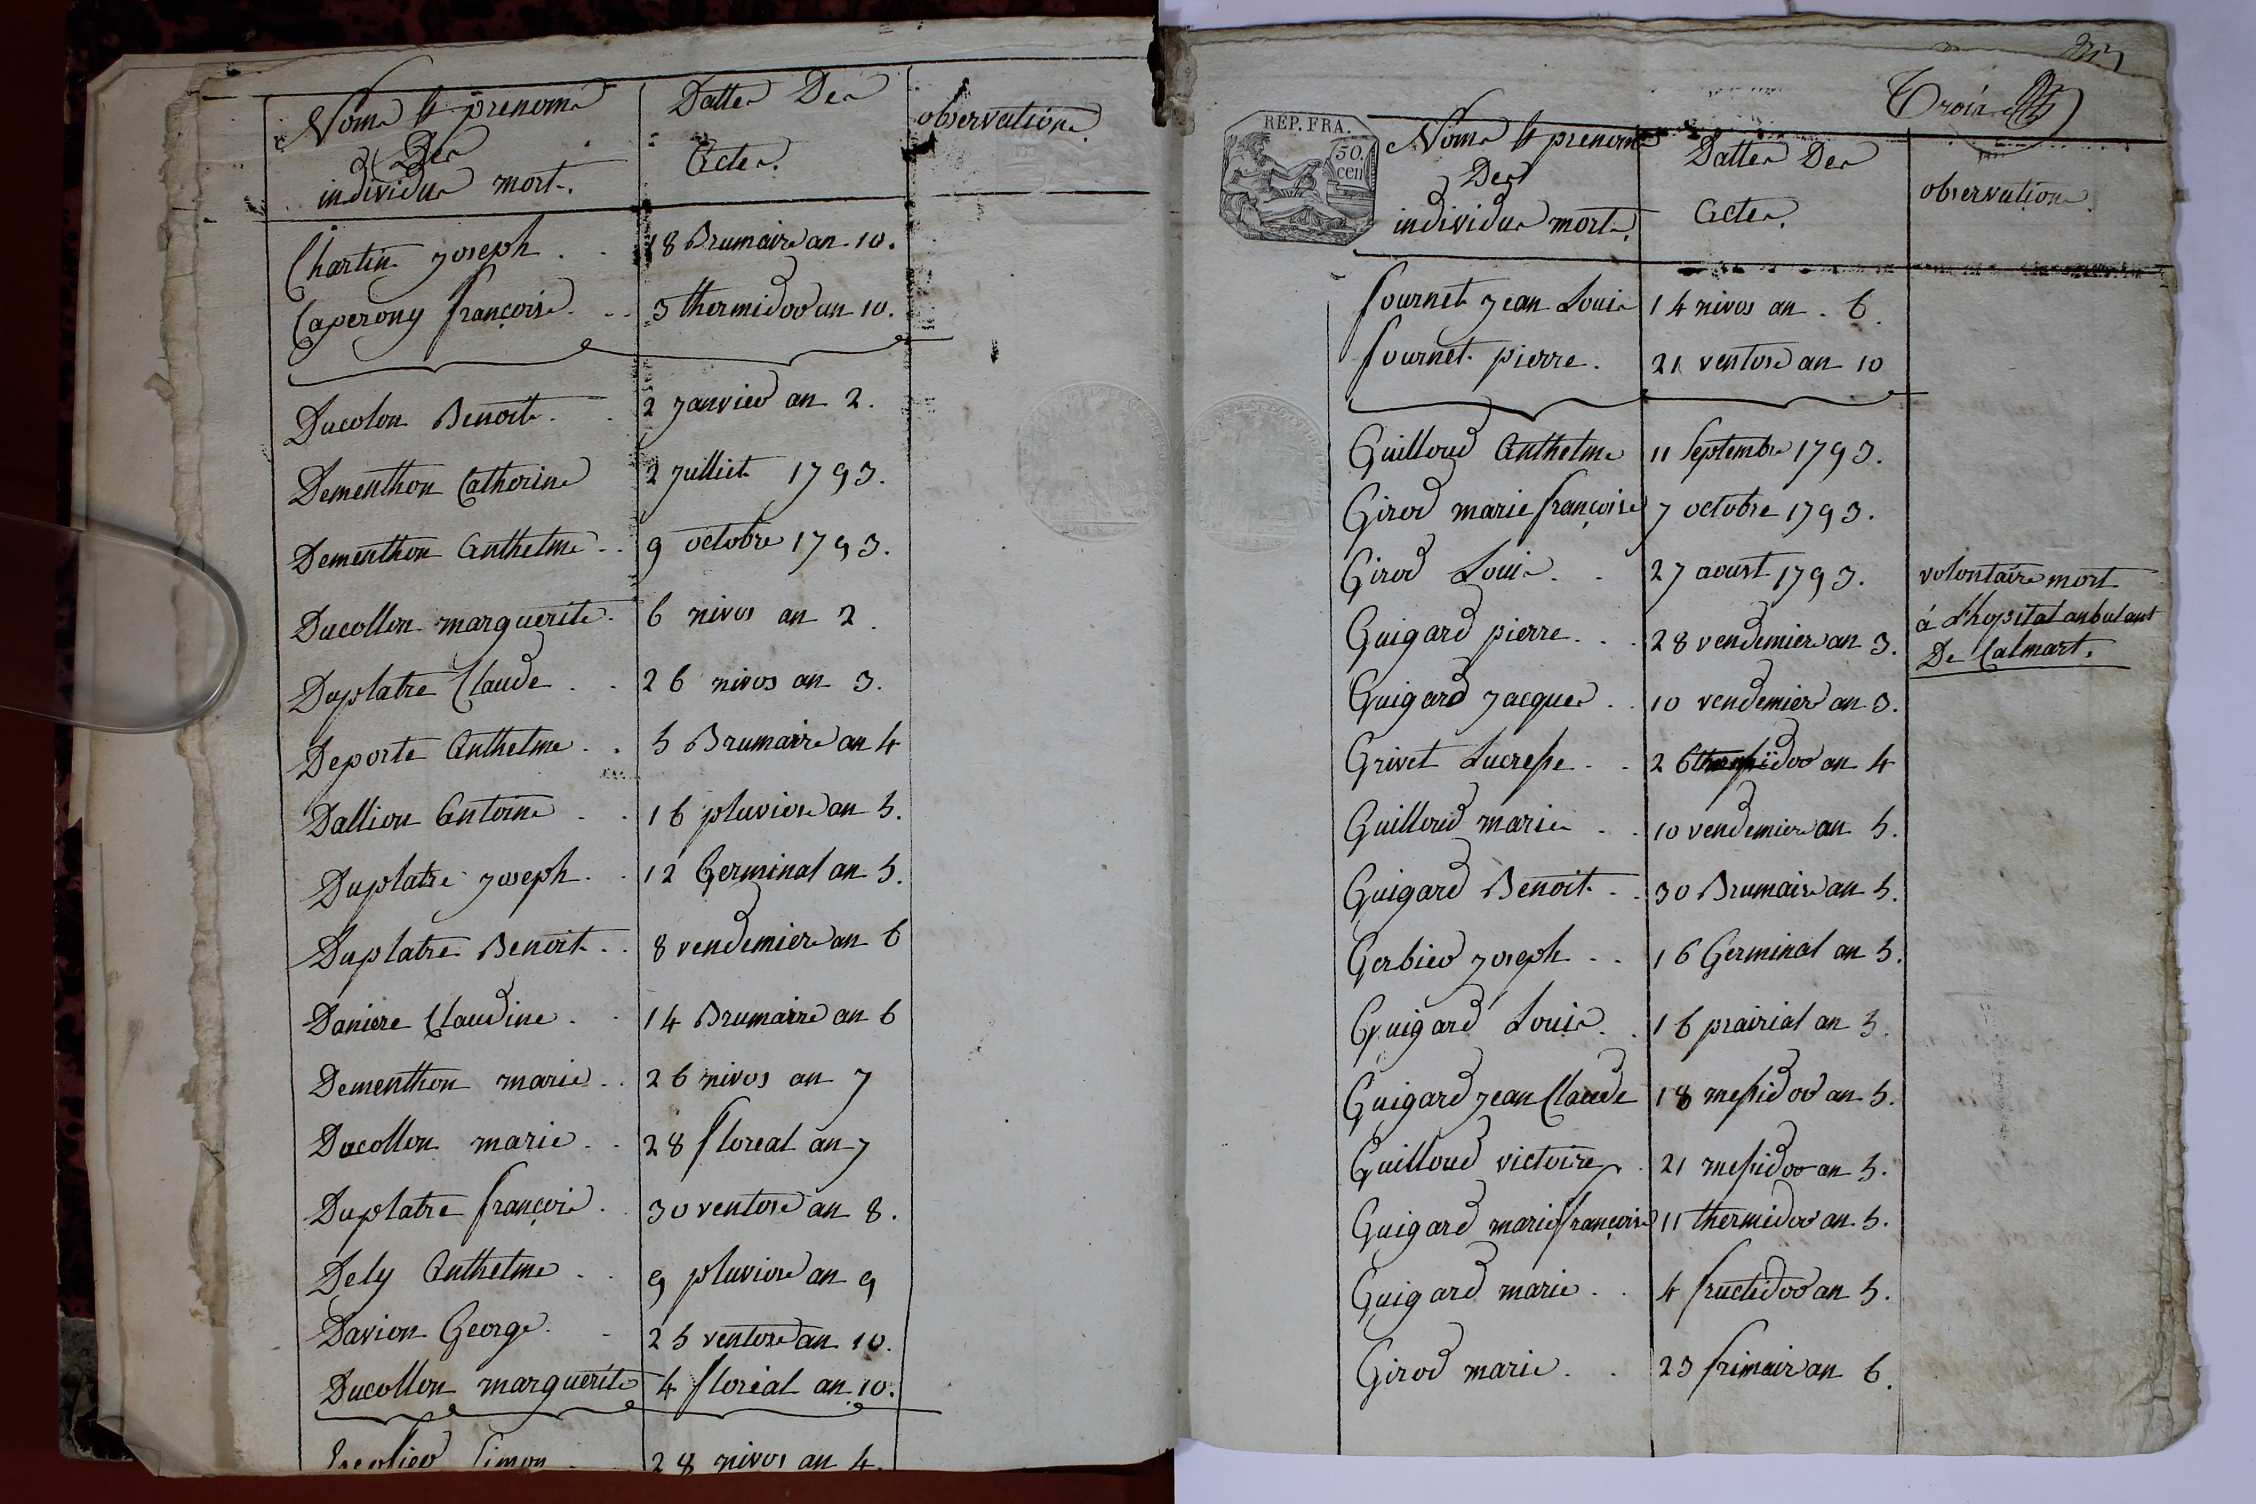 Noms & prenoms
Des
individus morts.
Dattes Des
Actes.
observations
Chartin joseph . . 18 Brumaire an 10.
Caperony françoise . . 3 thermidor an 10.
Ducolon Benoit . . 2 janvier an 2.
Dementhon Catherine 2 juillet 1793.
Dementhon Anthelme . . 9 octobre 1793.
Ducollon marguerite . 6 nivos an 2.
Duplatre Claude . . 26 nivos an 3.
Deporte Anthelme . . 5 Brumaire an 4
Dallion Antoine . . 16 pluviose an 5.
Duplatre joseph . . 12 Germinal an 5.
Duplatre Benoit . . 8 vendemiere an 6
Daniere Claudine . . 14 Brumaire an 6
Dementhon marie . . 26 nivos an 7
Ducollon marie . . 28 floreal an 7
Duplatre françois . . 30 ventose an 8.
Dely Anthelme . . 9 pluviose an 9
Davion George . . 25 ventose an 10.
Ducollon marguerite 4 floreal an 10.
Simon . . 28 nivos an 4.
Trois
REP. FRA.
50.
cen
Noms & prenoms
Des
individus morts.
Dattes Des
Actes.
observations
fournet jean Louis 14 nivos an . 6.
fournet pierre . 21 ventose an 10
Guilloud Anthelme 11 Septembre 1793.
Girod marie françoise 7 octobre 1793.
Girod Louis . . 27 aoust 1793. volontaire mort
à L'hopital anbulant
De Calmart.
Guigard pierre . . . 28 vendemiere an 3.
Guigard jacques . . 10 vendemiere an 3.
Grivet Lucresse . . 26 thermidor an 4
Guilloud marie . . 10 vendemiere an 5.
Guigard Benoit . . 30 Brumaire an 5.
Gerbier joseph . . 16 Germinal an 5.
Guigard Louis . . 16 prairial an 5.
Guigard jean Claude 18 messidor an 5.
Guilloud victoire . 21 messidor an 5.
Guigard marie françoise 11 thermidor an 5.
Guigard marie . . 4 fructidor an 5.
Girod marie . . 23 frimair an 6.